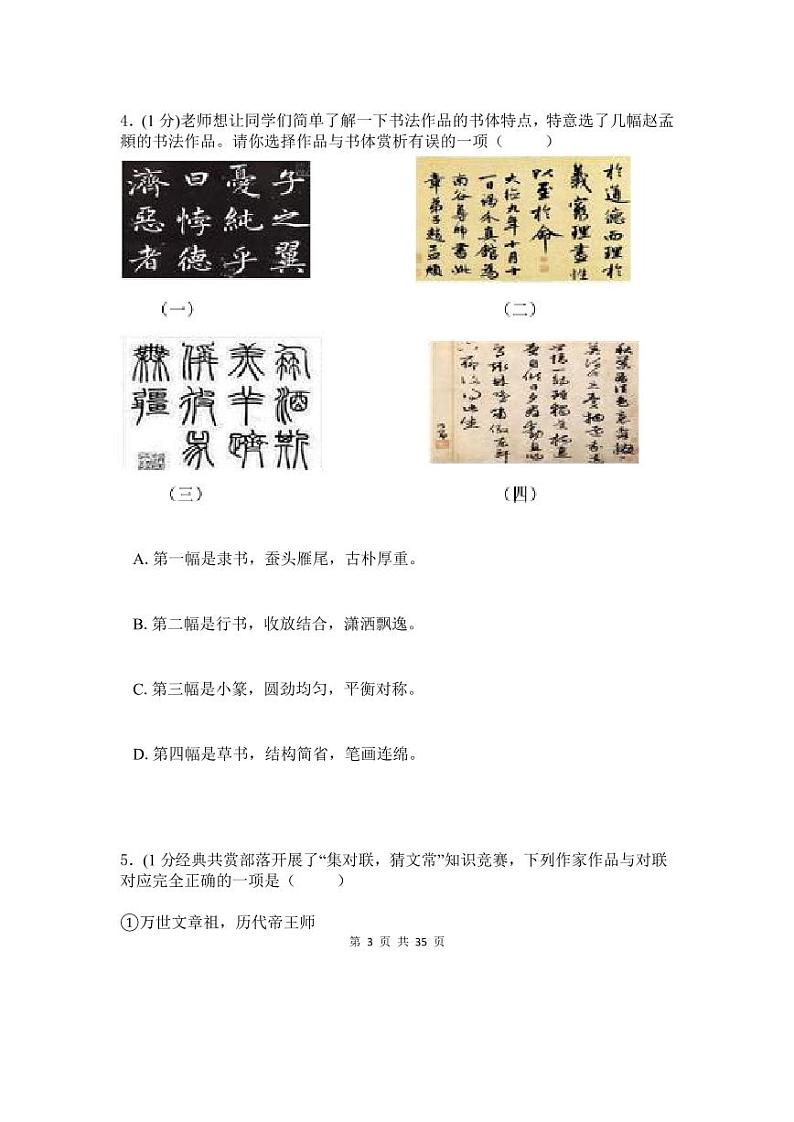 4．(1 分)老师想让同学们简单了解一下书法作品的书体特点，特意选了几幅赵孟
頫的书法作品。请你选择作品与书体赏析有误的一项（　　）
子之翼
憂純乎
日悖德
濟惡者
於道德而理於
義窮理盡性
以至於命
大德九年十月十
一日為
南谷尊師書此
章弟子趙孟頫
（一）
（二）
（三）
（四）
A. 第一幅是隶书，蚕头雁尾，古朴厚重。
B. 第二幅是行书，收放结合，潇洒飘逸。
C. 第三幅是小篆，圆劲均匀，平衡对称。
D. 第四幅是草书，结构简省，笔画连绵。
5．(1 分经典共赏部落开展了“集对联，猜文常”知识竞赛，下列作家作品与对联
对应完全正确的一项是（　　）
①万世文章祖，历代帝王师
第 3 页 共 35 页